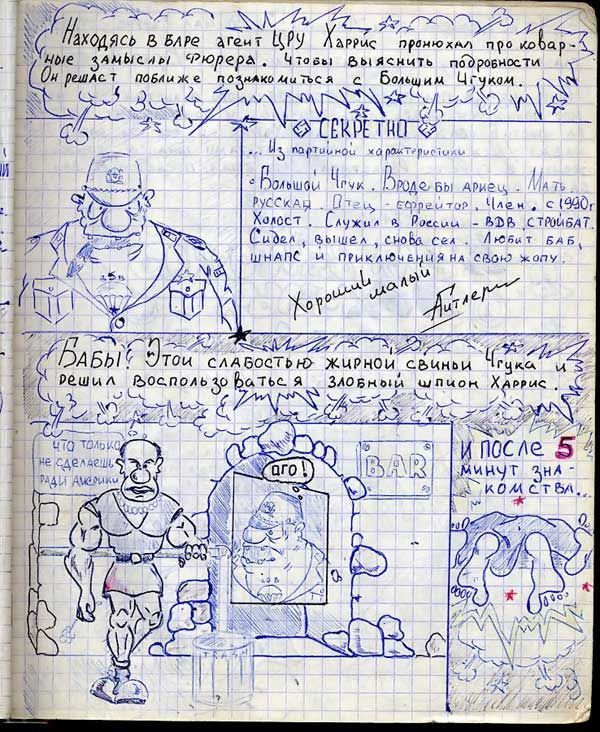 Находясь в баре агент ЦРУ Харрис пронюхал про ковар-
ные замыслы фюрера. Чтобы выяснить подробности
Он решаст поближе познакомиться с Большим Чгуком.
СЕКРЕТНО
... Из партийной характеристики
Большой Чгук. Вроде бы ариец. Мать.
русская. Отец - ефрейтор. Член. с 1990г
Холост. Служил в России - ВДВ, стройбат.
Сидел, вышел, снова сел. Любит баб,
шнапс и приключения на свою жопу.
Хороший
малый
Гитлер
Бабы! Этой слабостью жирной свиньи Чгука и
решил воспользоваться злобный шпион Харрис.
что только
не сделаешь
ради Америки
ого!
BAR
TRASH
И после 5
минут зна-
комства...